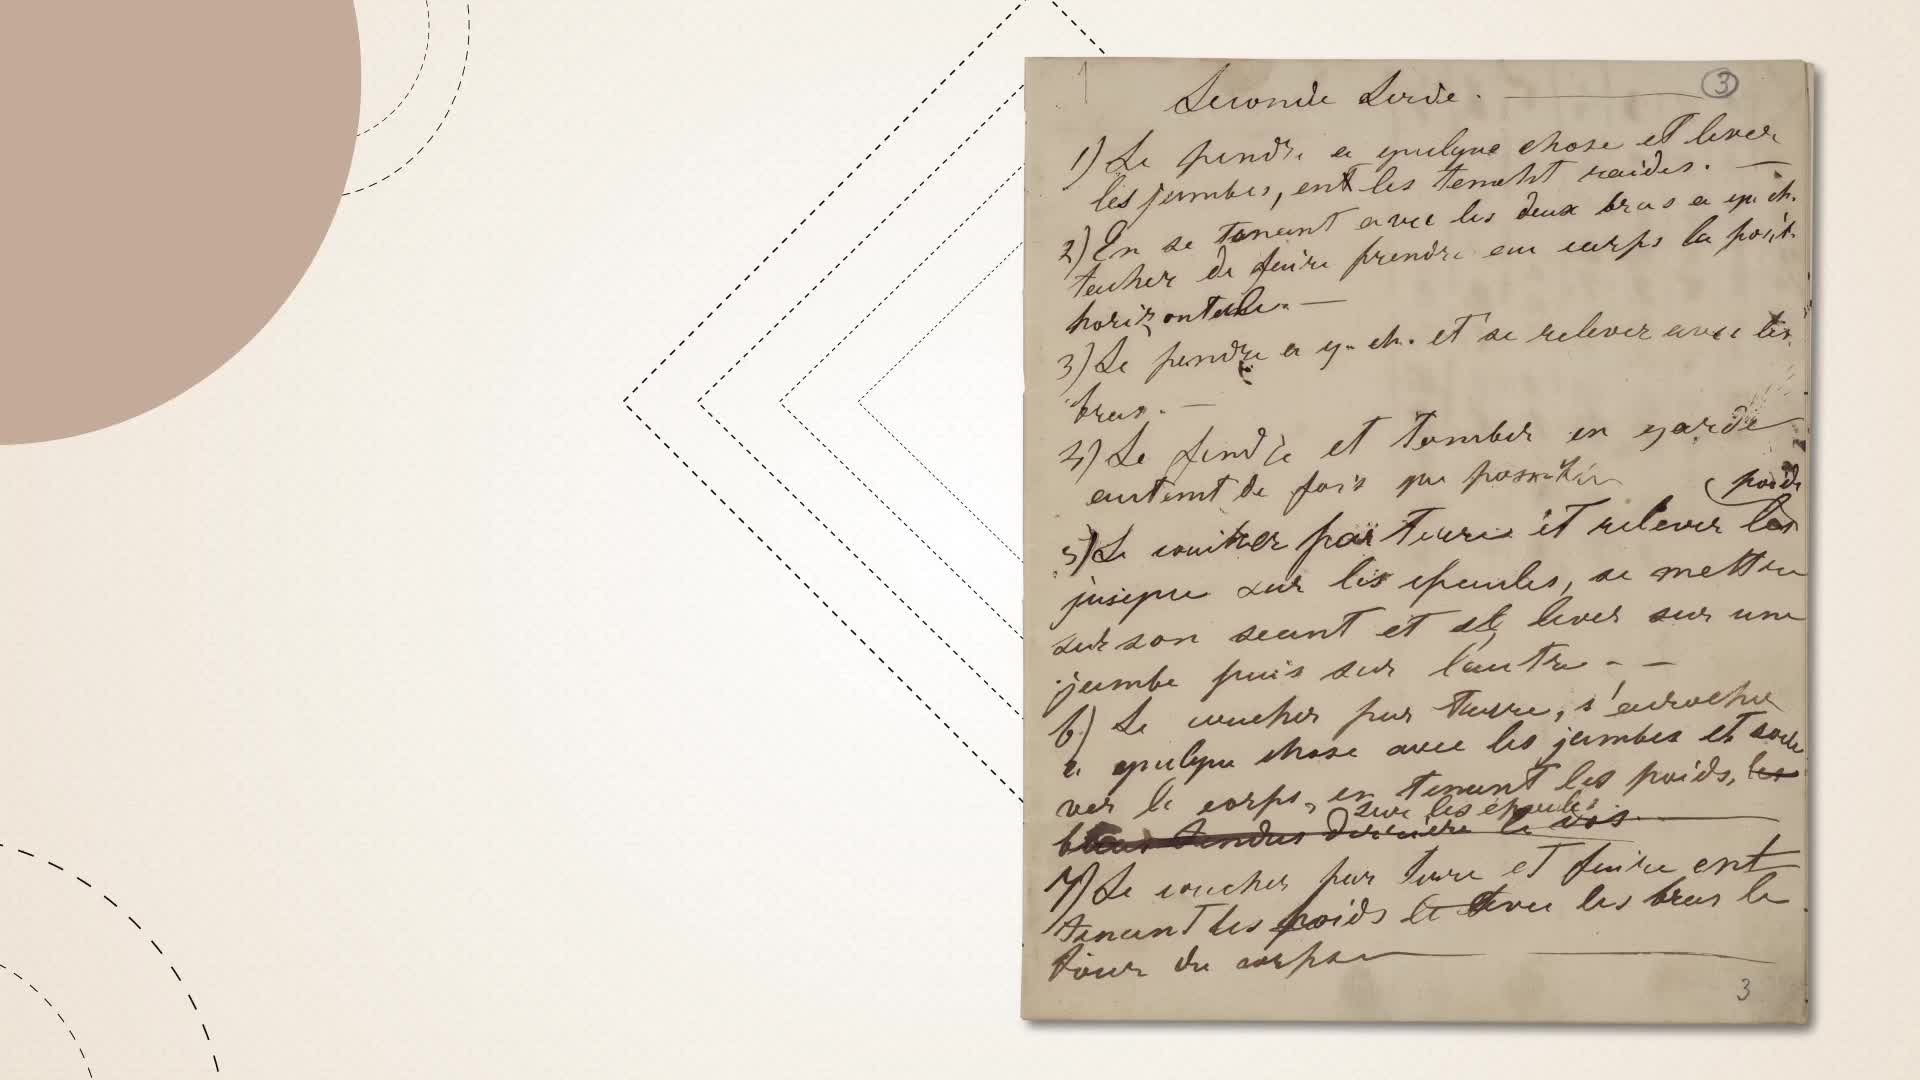 1
3
Seconde Serie.
1) Se pendre a quelque chose et lever
les jambes, en les tenant raides. —
2) En se tenant avec les deux bras a qu. ch.
tacher de faire prendre au corps la posit.
horizontale. —
3) Se pendre a q. ch. et se relever avec les
bras. —
4) Se fendre et tomber en garde
autant de fois que possible
(poids
5) Se coucher par terre et relever les
jusque sur les epaules, se mettre
sur son seant et se lever sur une
jambe puis sur l'autre - —
6) Se coucher par terre, s'acrocher
a quelque chose avec les jambes et soule
ver le corps, en tenant les poids, les
sur les épaules.
bras tendus derrière le dos.
7) Se coucher par terre et faire en
tenant les poids avec les bras le
tour du corps
3